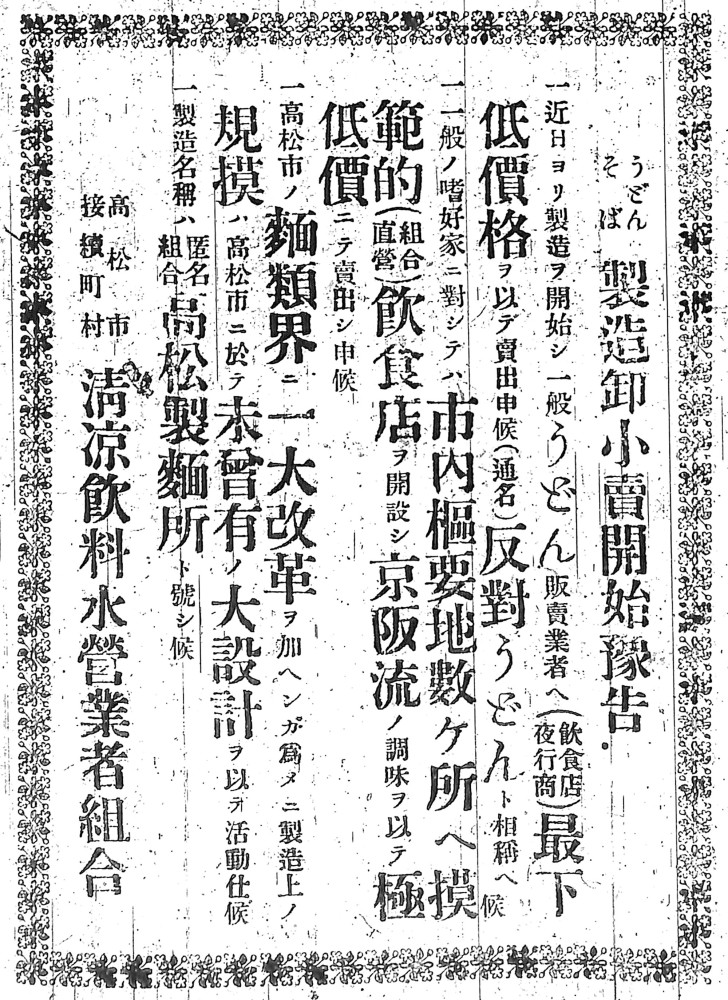 うどん
そば 製造卸小賣開始豫告
一近日ヨリ製造ヲ開始シ一般うどん販賣業者ヘ(飲食店夜行商)最下
低價格ヲ以テ賣出申候(通名)反對うどんト相稱ヘ候
一一般ノ嗜好家ニ對シテハ市内樞要地數ケ所ヘ摸
範的(組合直營)飲食店ヲ開設シ京阪流ノ調味ヲ以テ極
低價ニテ賣出シ申候
一高松市ノ麵類界ニ一大改革ヲ加ヘンガ爲メニ製造上ノ
規摸ハ高松市ニ於テ未曾有ノ大設計ヲ以テ活動仕候
一製造名稱ハ匿名組合高松製麵所ト號シ候
高松市
接續町村 淸凉飲料水營業者組合